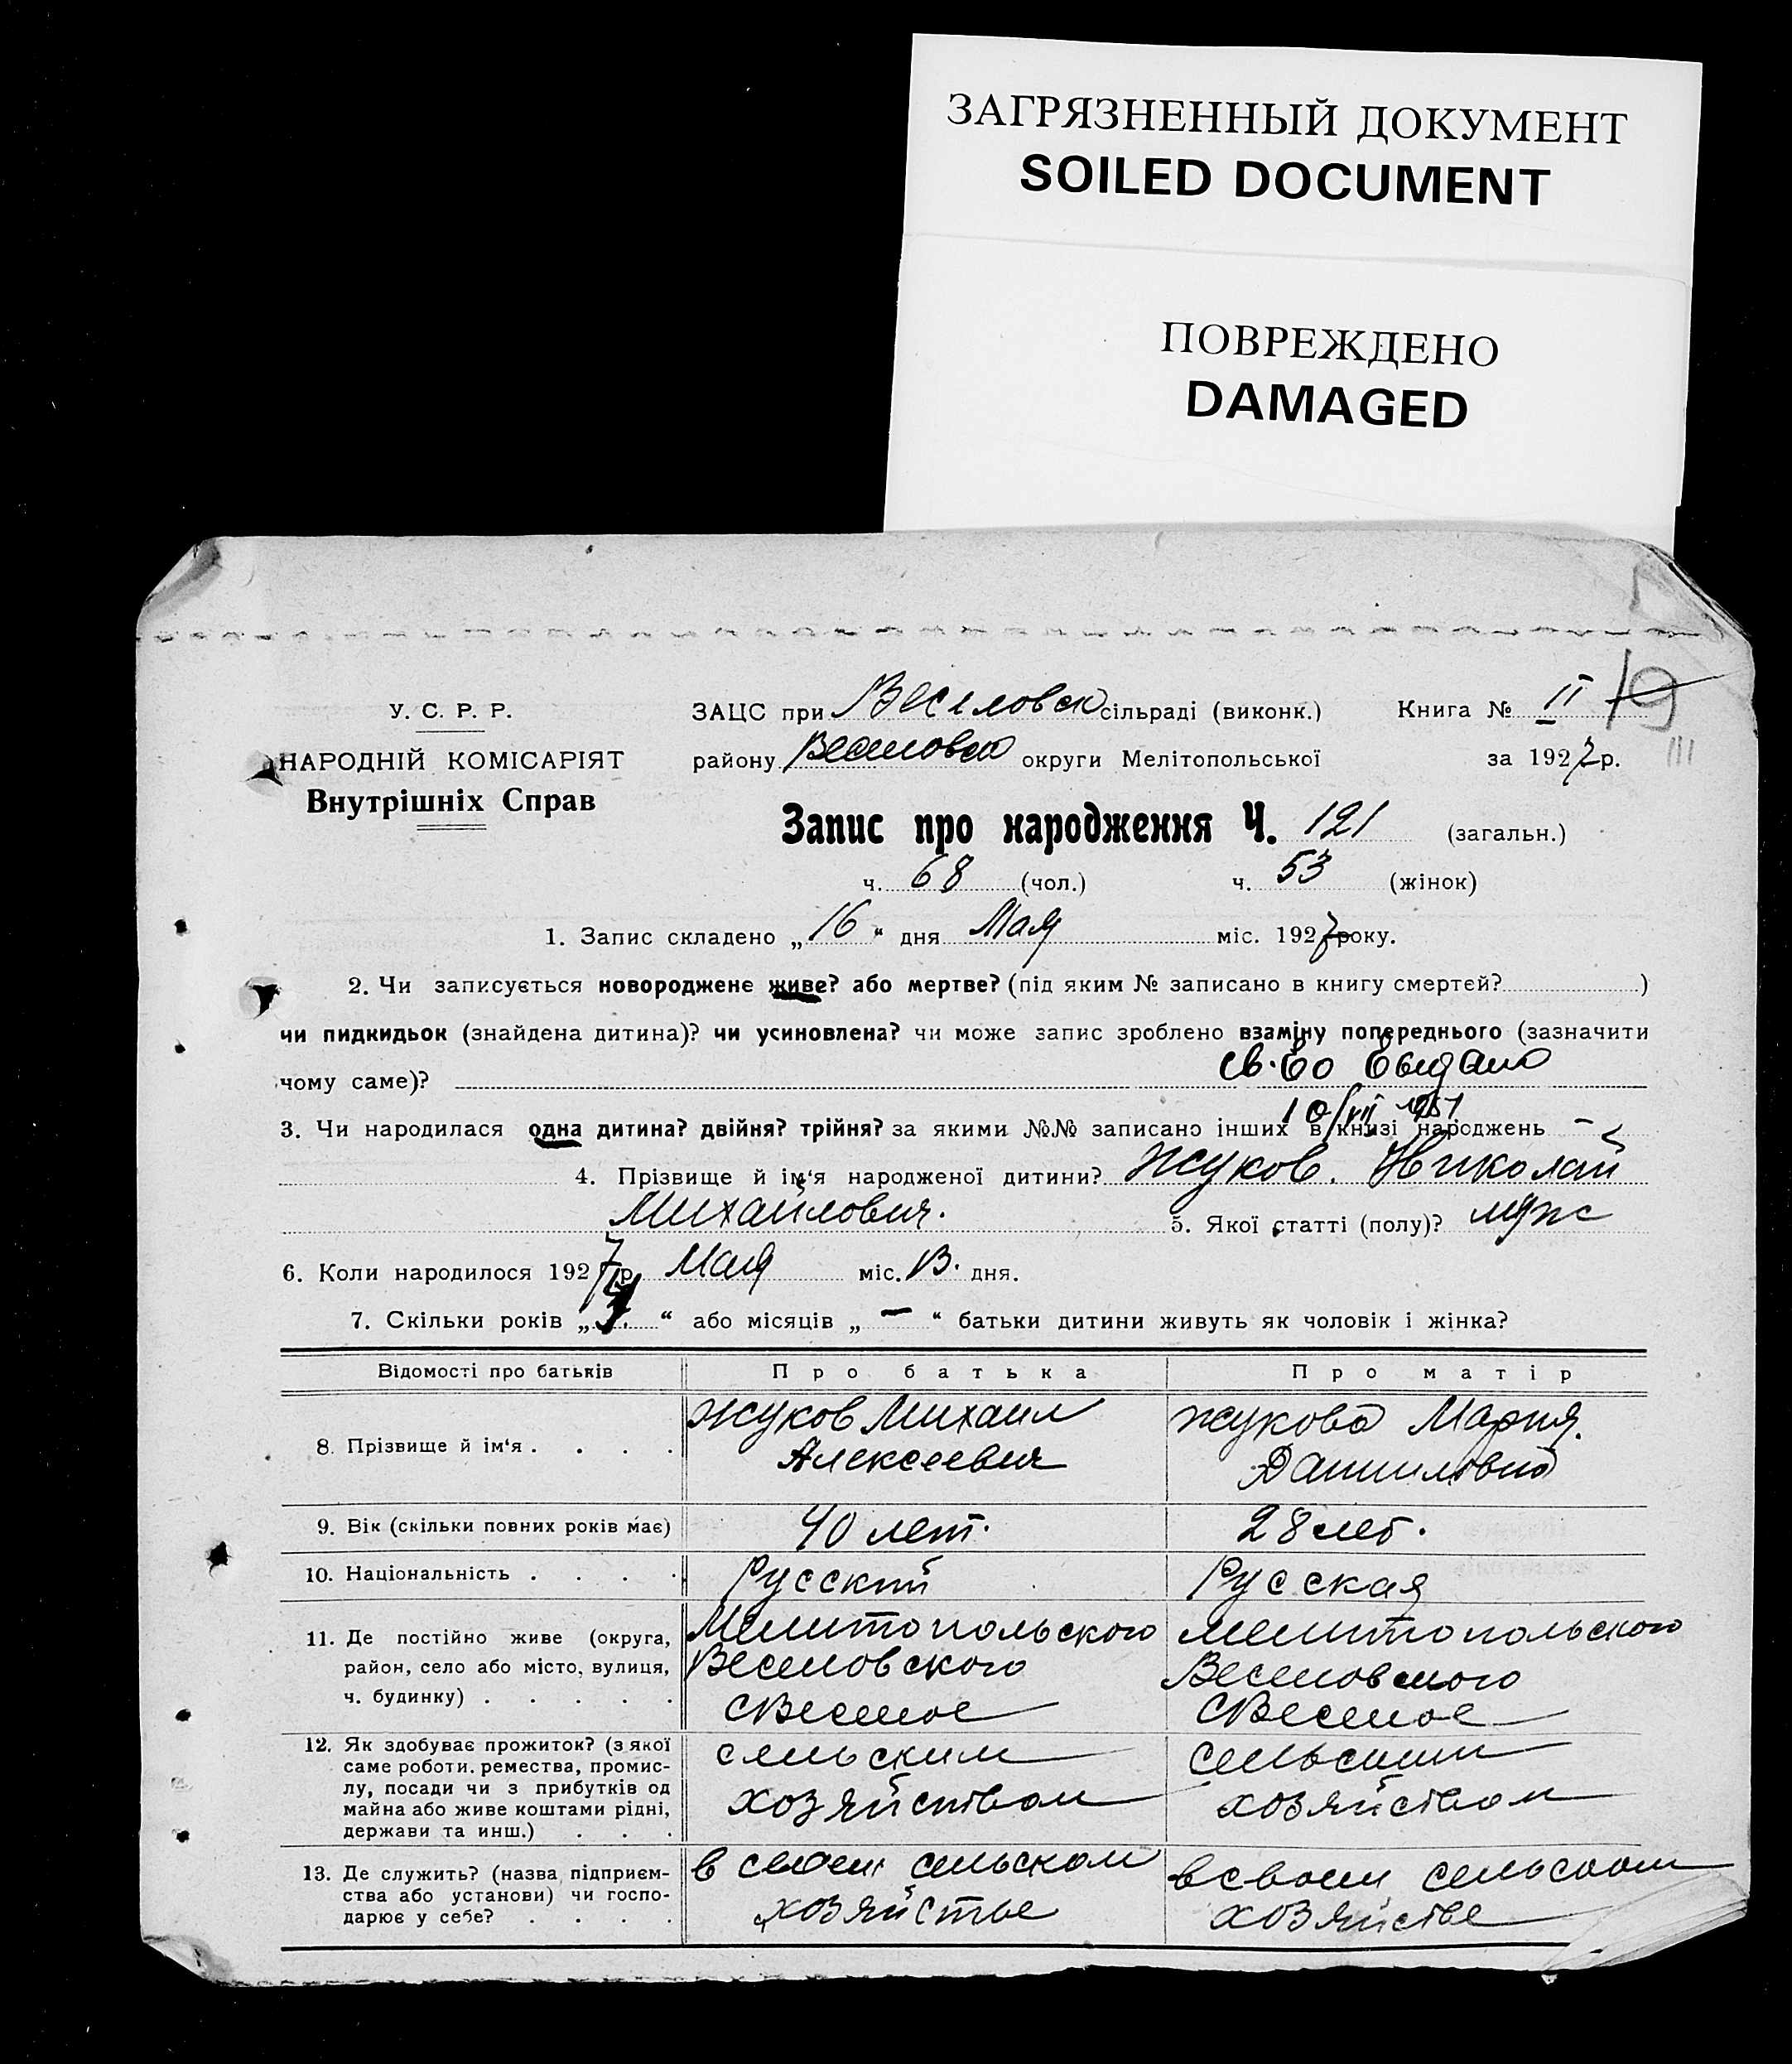 ЗАГРЯЗНЕННЫЙ ДОКУМЕНТ
SOILED DOCUMENT
ПОВРЕЖДЕНО
DAMAGED
У. С. Р. Р.
НАРОДНІЙ КОМІСАРІЯТ
Внутрішніх Справ
ЗАЦС при Веселовск сільраді (виконк.) Книга № II 19
району Веселовск округи Мелітопольської за 1927 р. III
Запис про народження Ч. 121 (загальн.)
ч. 68 (чол.) ч. 53 (жінок)
1. Запис складено „16“ дня Мая міс. 1927 року.
2. Чи записується новороджене живе? або мертве? (під яким № записано в книгу смертей? )
чи пидкидьок (знайдена дитина)? чи усиновлена? чи може запис зроблено взаміну попереднього (зазначити
чому саме)? св-во выдано
10/VII 1951
3. Чи народилася одна дитина? двійня? трійня? за якими №№ записано інших в книзі народжень —
4. Прізвище й ім‘я народженої дитини? Жуков. Николай
Михайлович. 5. Якої статті (полу)? муж
6. Коли народилося 1927 р. Мая міс. 13. дня.
7. Скільки років „ “ або місяців „ — “ батьки дитини живуть як чоловік і жінка?
Відомості про батьків Про батька Про матір
8. Прізвище й ім‘я . . . . Жуков Михаил Алексеевич Жукова Мария. Данииловна
9. Вік (скільки повних років має) 40 лет. 28 лет.
10. Національність . . . . Русский Русская
11. Де постійно живе (округа,
район, село або місто, вулиця,
ч. будинку) . . . . .
Мелитопольского
Веселовского
с Веселое
Мелитопольского
Веселовского
с Веселое
12. Як здобуває прожиток? (з якої
саме роботи. ремества, промис-
лу, посади чи з прибутків од
майна або живе коштами рідні,
держави та инш.) . . .
сельским
хозяйством
сельским
хозяйством
13. Де служить? (назва підприєм-
ства або установи) чи госпо-
дарює у себе? . . . .
в своем сельском
хозяйстве
в своем сельском
хозяйстве